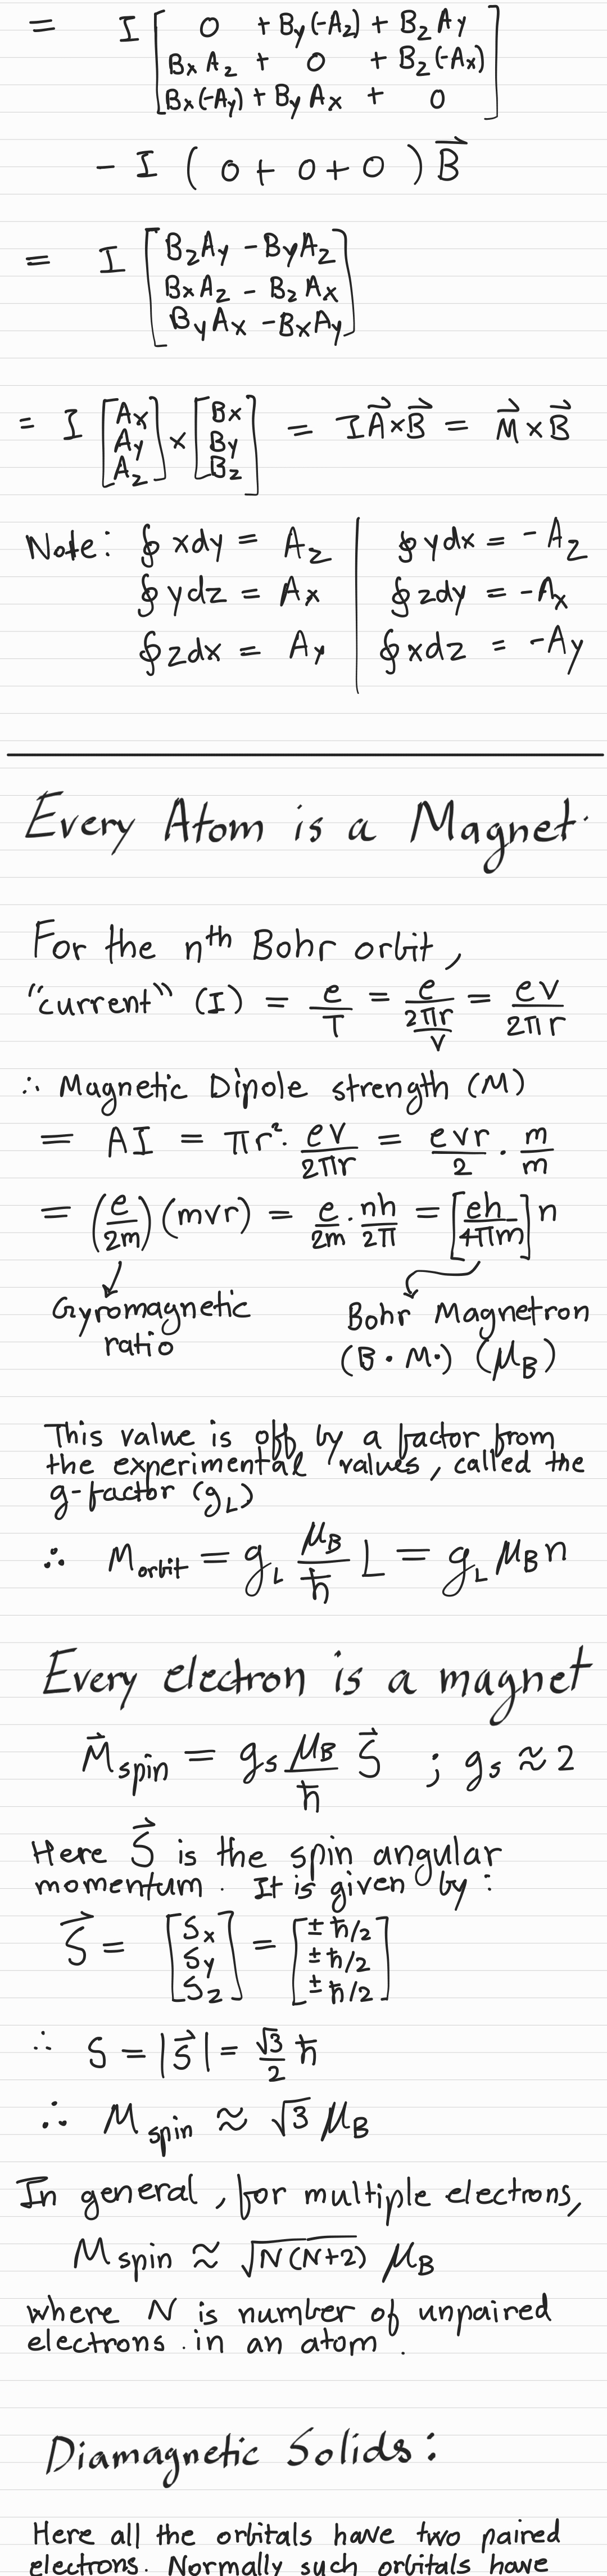 = I [ 0 + By(-Az) + BzAy
BxAz + 0 + Bz(-Ax)
Bx(-Ay) + ByAx + 0 ]
- I ( 0 + 0 + 0 ) B⃗
= I [ BzAy - ByAz
BxAz - BzAx
ByAx - BxAy ]
= I [ Ax Ay Az ] × [ Bx By Bz ] = I A⃗×B⃗ = M⃗×B⃗
Note: ∮ xdy = Az | ∮ ydx = -Az
∮ ydz = Ax | ∮ zdy = -Ax
∮ zdx = Ay | ∮ xdz = -Ay
Every Atom is a Magnet.
For the nth Bohr orbit,
"current" (I) = e/T = e/(2πr/v) = ev/2πr
∴ Magnetic Dipole strength (M)
= AI = πr². ev/2πr = evr/2 . m/m
= (e/2m)(mvr) = e/2m . nh/2π = [eh/4πm] n
Gyromagnetic ratio
Bohr Magnetron
(B.M.) (μB)
This value is off by a factor from
the experimental values, called the
g-factor (gL)
∴ Morbit = gL μB/ħ L = gL μB n
Every electron is a magnet
M⃗spin = gs μB/ħ S⃗ ; gs ≈ 2
Here S⃗ is the spin angular
momentum. It is given by:
S⃗ = [ Sx Sy Sz ] = [ ±ħ/2 ±ħ/2 ±ħ/2 ]
∴ S = |S⃗| = √3/2 ħ
∴ Mspin ≈ √3 μB
In general, for multiple electrons,
Mspin ≈ √N(N+2) μB
where N is number of unpaired
electrons in an atom.
Diamagnetic Solids:
Here all the orbitals have two paired
electrons. Normally such orbitals have